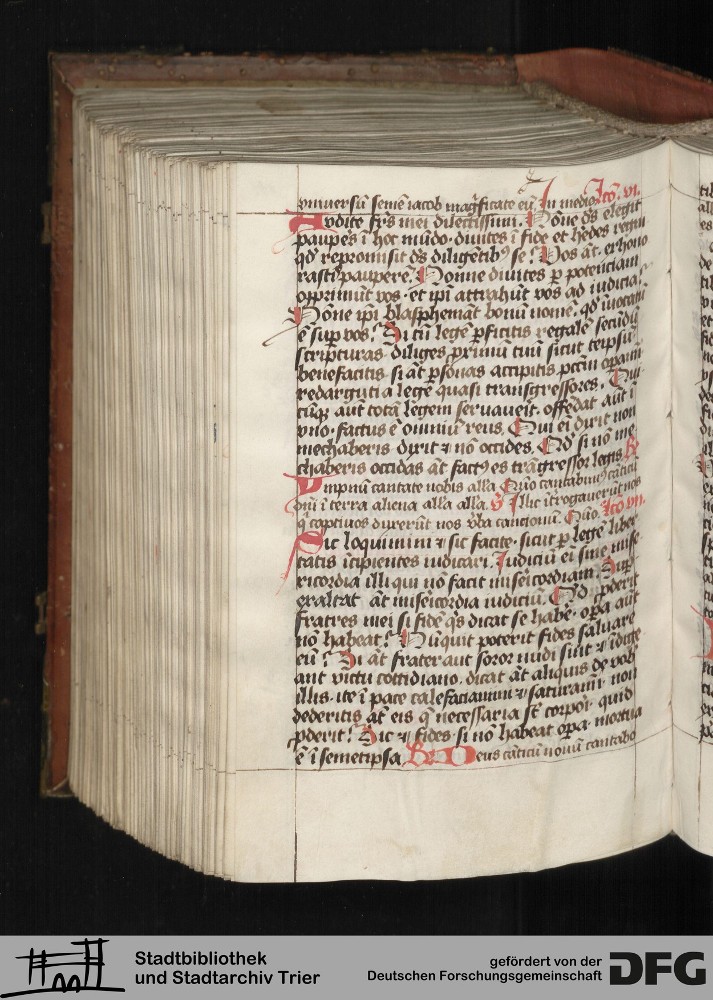 vniuersū semē iacob magͥficate eū In medio Lcō. vi.
Audite frēs mei dilectissimi. Nōne dēs elegit
paupēs ī hoc mūdo. diuites ī fide et hēdes regni
qd̄ repromisit dēs diligētibꝰ se? Vos āt. exhono
rastis paupere. Nonne diuites ꝑ potenciam
opprimūt vos. et ip̄i attrahūt vos ad iudicia?
Nōne ip̄i blasphemāt bonū nomē. qd̄ inocatū
ē suꝑ vos? Si tū legē ꝑficitis regalē secūdū
scripturas. diliges ꝓximū tuū sicut teipsū.
benefacitis si āt ꝑsonas accipitis pctm̄ oꝑamī
redarguti a lege quasi transgressores. Qui
cūqꝫ aūt totā legem seruauerit. offēdat aūt ī
vno. factus ē omniū reus. Qui eī dixit non
mechaberis dixit ⁊ nō occides. Qd̄ si nō me
chaberis occidas āt factꝰ es trāgressor legis. R̄
Impnū cantate nobis alla Quō cantabimꝰ cāticū
dn̄i ī terra aliena alla alla. V̄ Illic ītrogauerūt nos
q̄ captiuos duxerūt nos v̄ba cancionū. Quō. Lcō vii.
Sic loquimini ⁊ sic facite. sicut ꝑ legē liber
tatis īcipientes iudicari. Iudiciū eī sine mise
ricordia illi qui nō facit misericordiam. Suꝑ
exaltat āt misericordia iudiciū. Qd̄ ꝓderit
fratres mei si fidē qͥs dicat se habē. oꝑa aūt
nō habeat? Nūquit poterit fides saluare
eū? Si āt frater aut soror nudi sint ⁊ īdigē
ant victu cottidiano. dicat āt aliquis de vob̄
illis. ite ī pace calefacimini ⁊ saturamī. non
dederitis āt eis q̄ necessaria st̄ corpōr. quid
ꝓderit? Sic ⁊ fides. si nō habeat oꝑa. mortua
ē ī semetipsa. R̄ Deus cāticū nouū cantabo
Stadtbibliothek
und Stadtarchiv Trier
gefördert von der
Deutschen Forschungsgemeinschaft
DFG